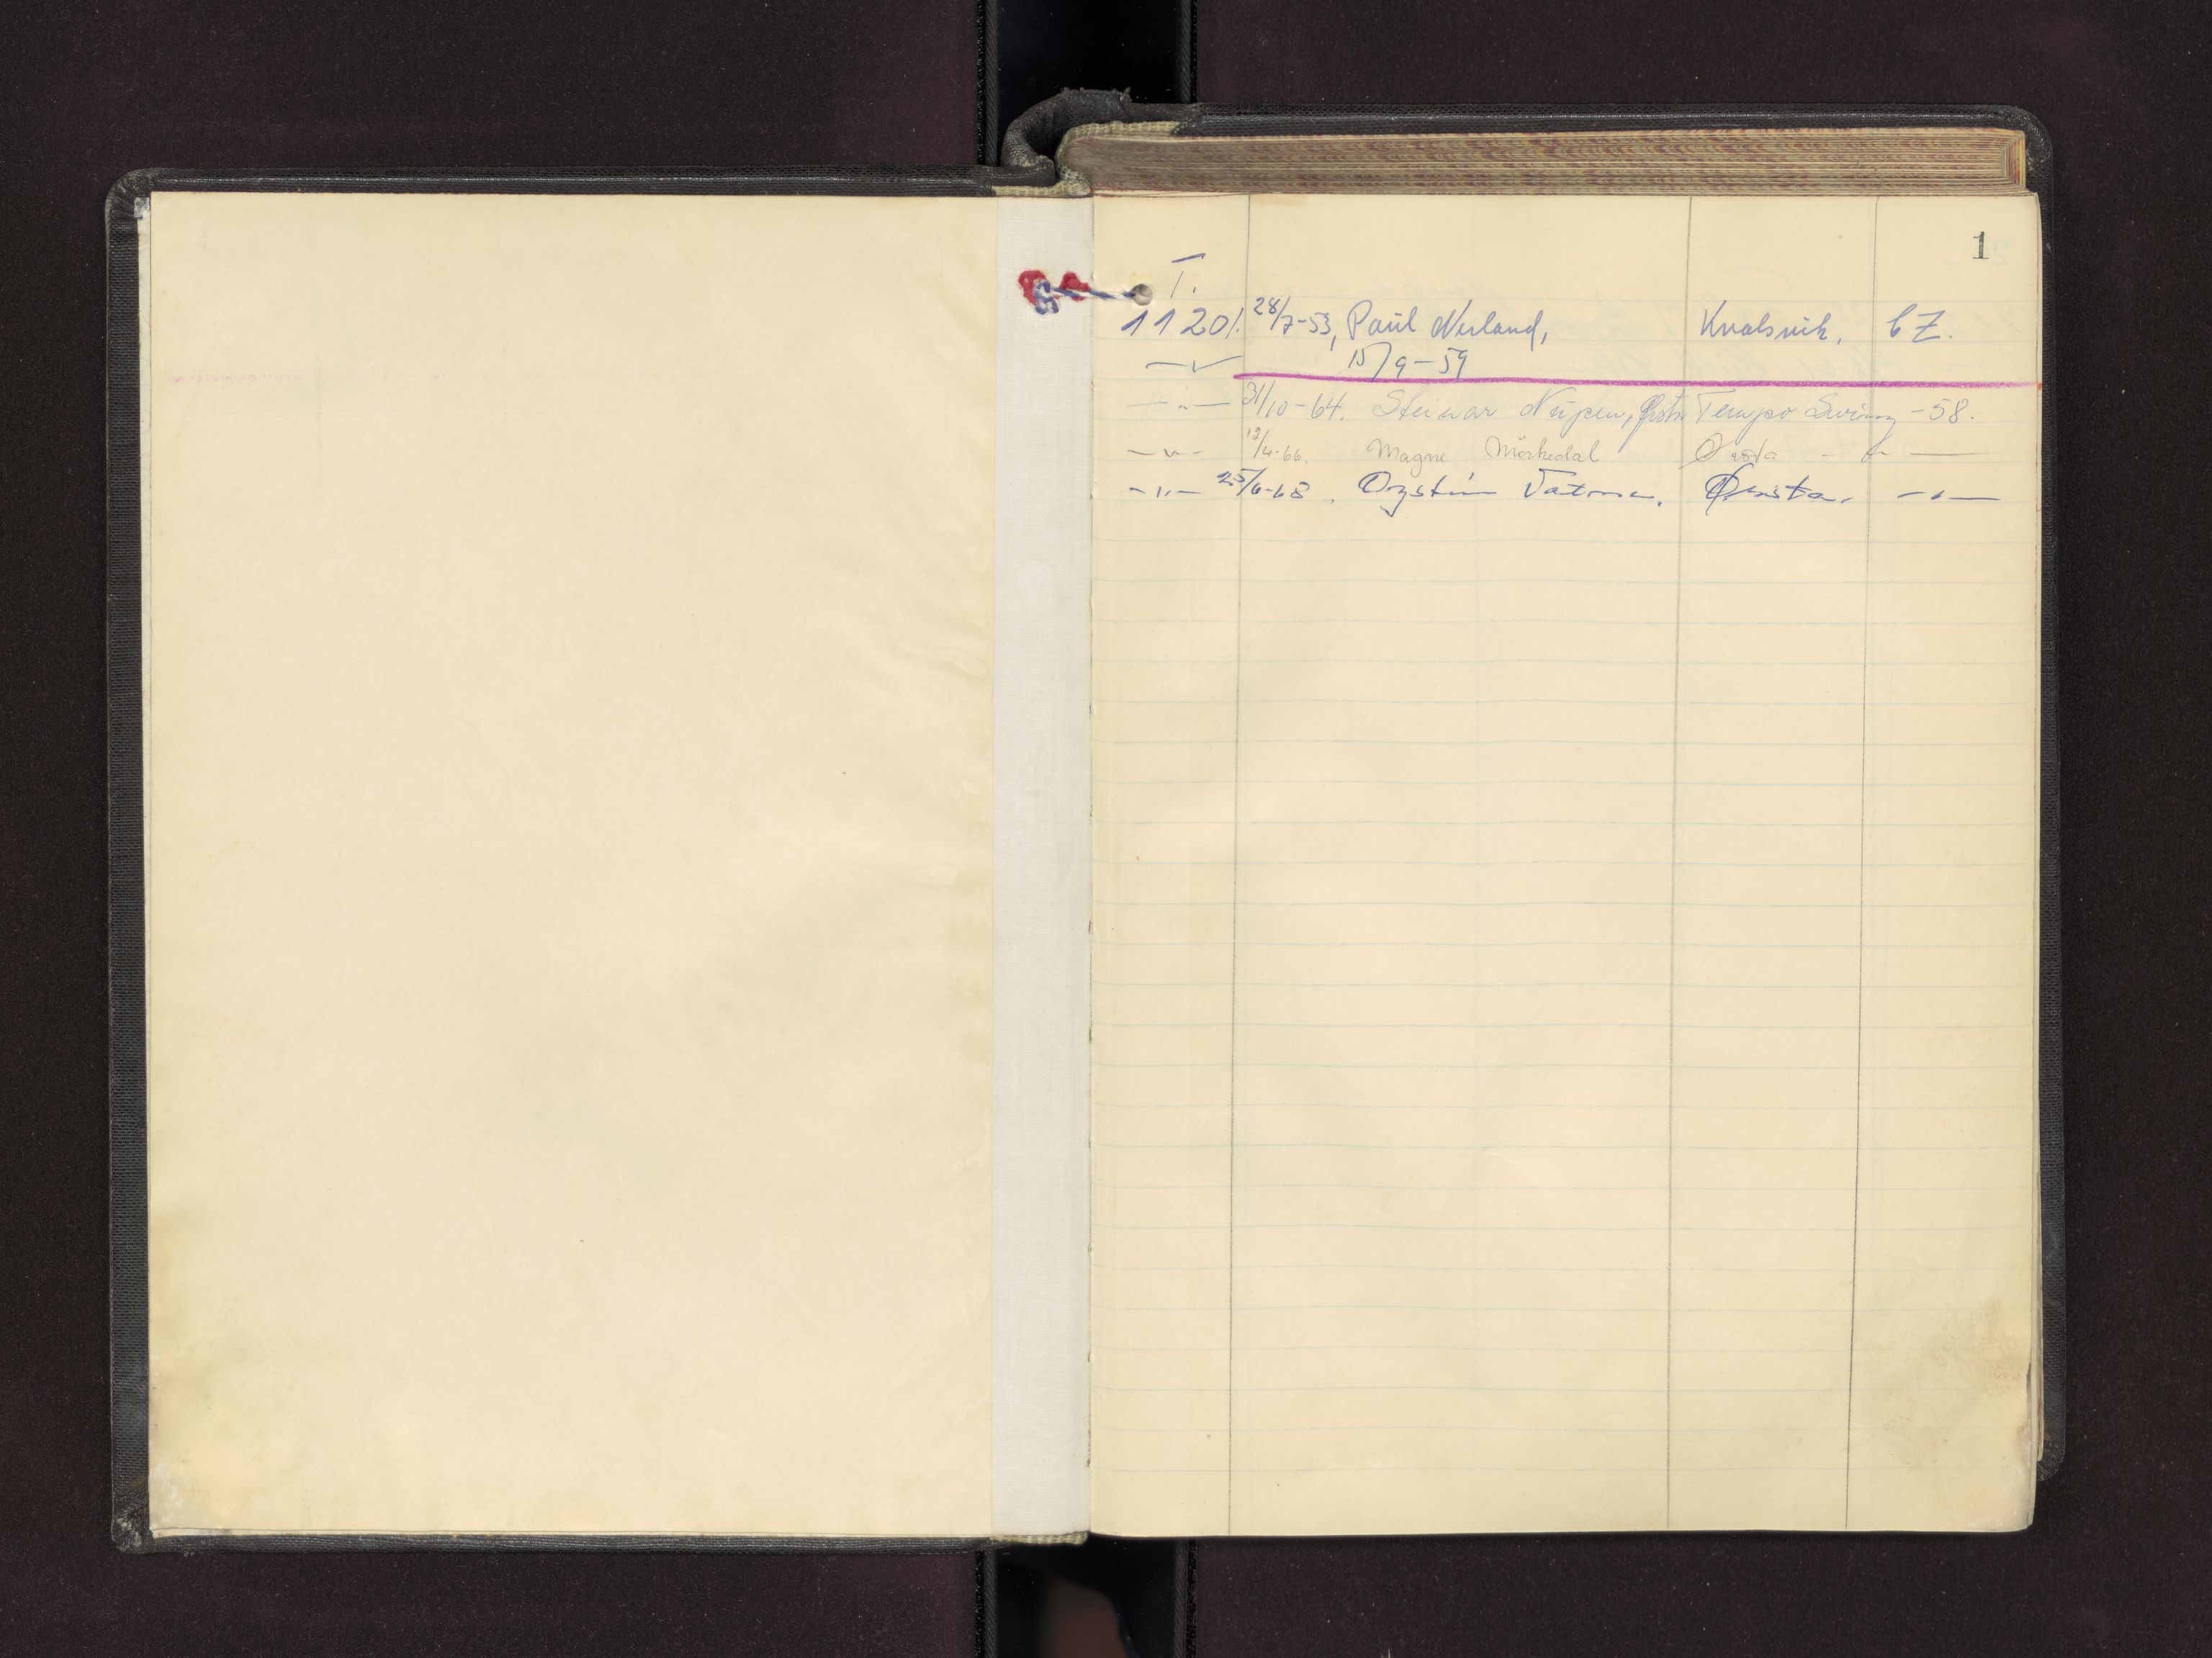 1
T.
11201. 28/7-53, Paul Nerland, Kvalsvik, CZ.
— v — 15/9-59
— " — 31/10-64. Steinar Nupen, Ørsta Tempo Swing -58.
— v — 12/4-66. Magne Mörkedal Ørsta — " —
— " — 25/6-68. Oystein Vatne. Ørsta. — " —